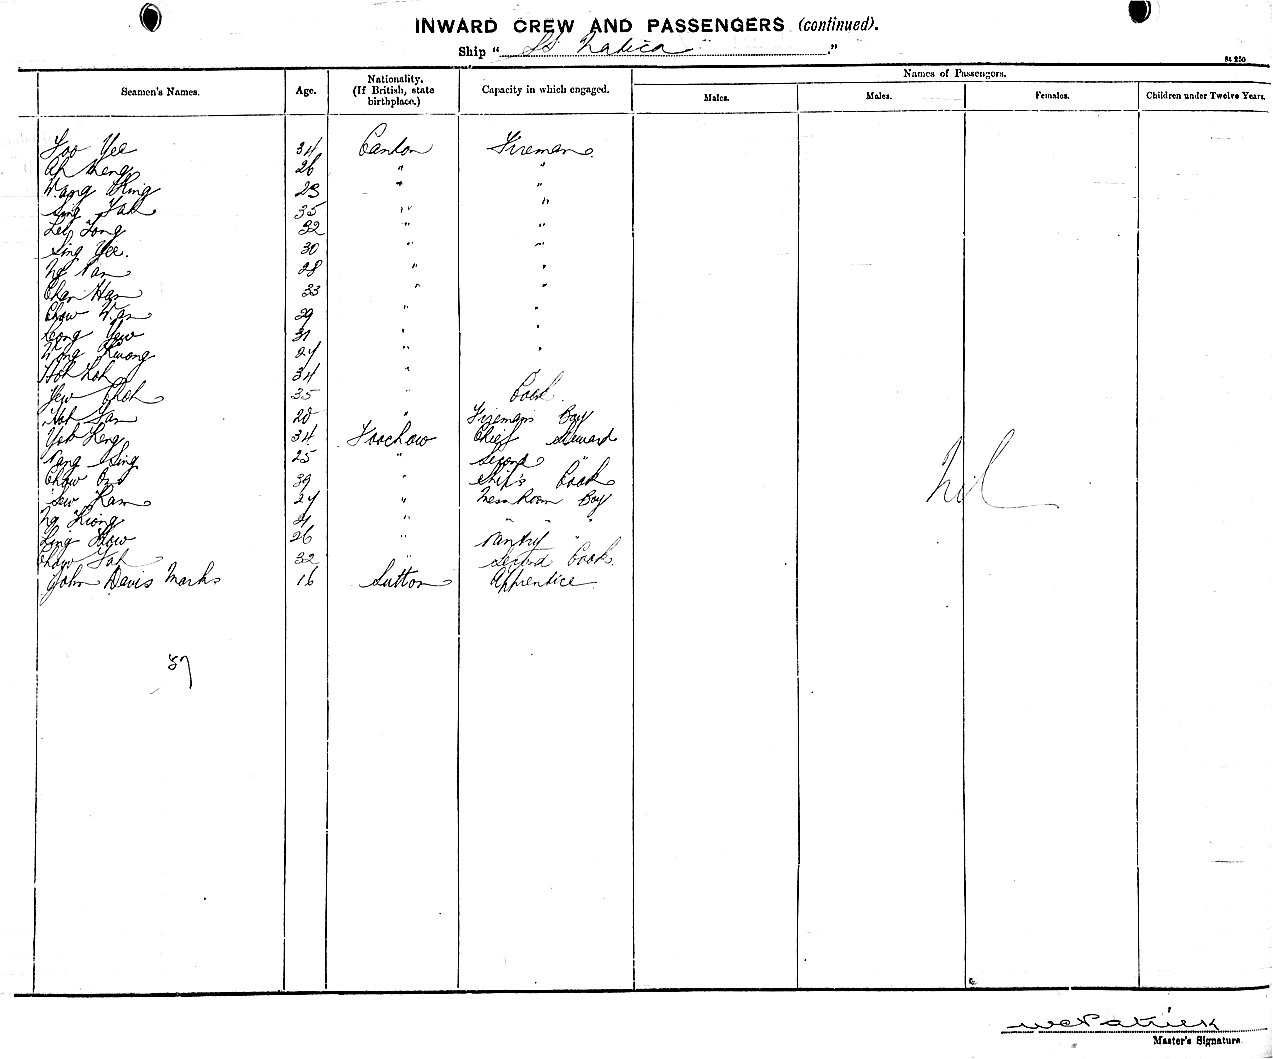 INWARD CREW AND PASSENGERS (continued).
Ship " SS Natica "
St 250
Seamen's Names. Age. Nationality. (If British, state birthplace.) Capacity in which engaged. Names of Passengers.
Males. Males. Females. Children under Twelve Years.
Foo Yee 34 Canton Fireman
Ah Meng 26 " "
Wang Hing 23 " "
Sing Fah 35 " "
Lee Tong 32 " "
Sing Yee. 30 " "
Ng Pan 28 " "
Chan Han 33 " "
Chow Wan 29 " "
Leong Yew 31 " "
Wong Kwong 24 " "
Hoh Loh 34 "
Yew Choh 35 " Cook.
Hoh San 20 " Fireman's Boy
Yoh Keng 34 Foochow Chief Steward
Pang Sing 25 " Second "
Chow 39 " Ship's Cook
Sew Kam 24 " Mess Room Boy
Ng Kiong 21 " " " "
Ling How 26 " Pantry "
Chow Fah 32 " Second Cook.
John Davis Marks 16 Sutton Apprentice
Nil
57
Master's Signature.